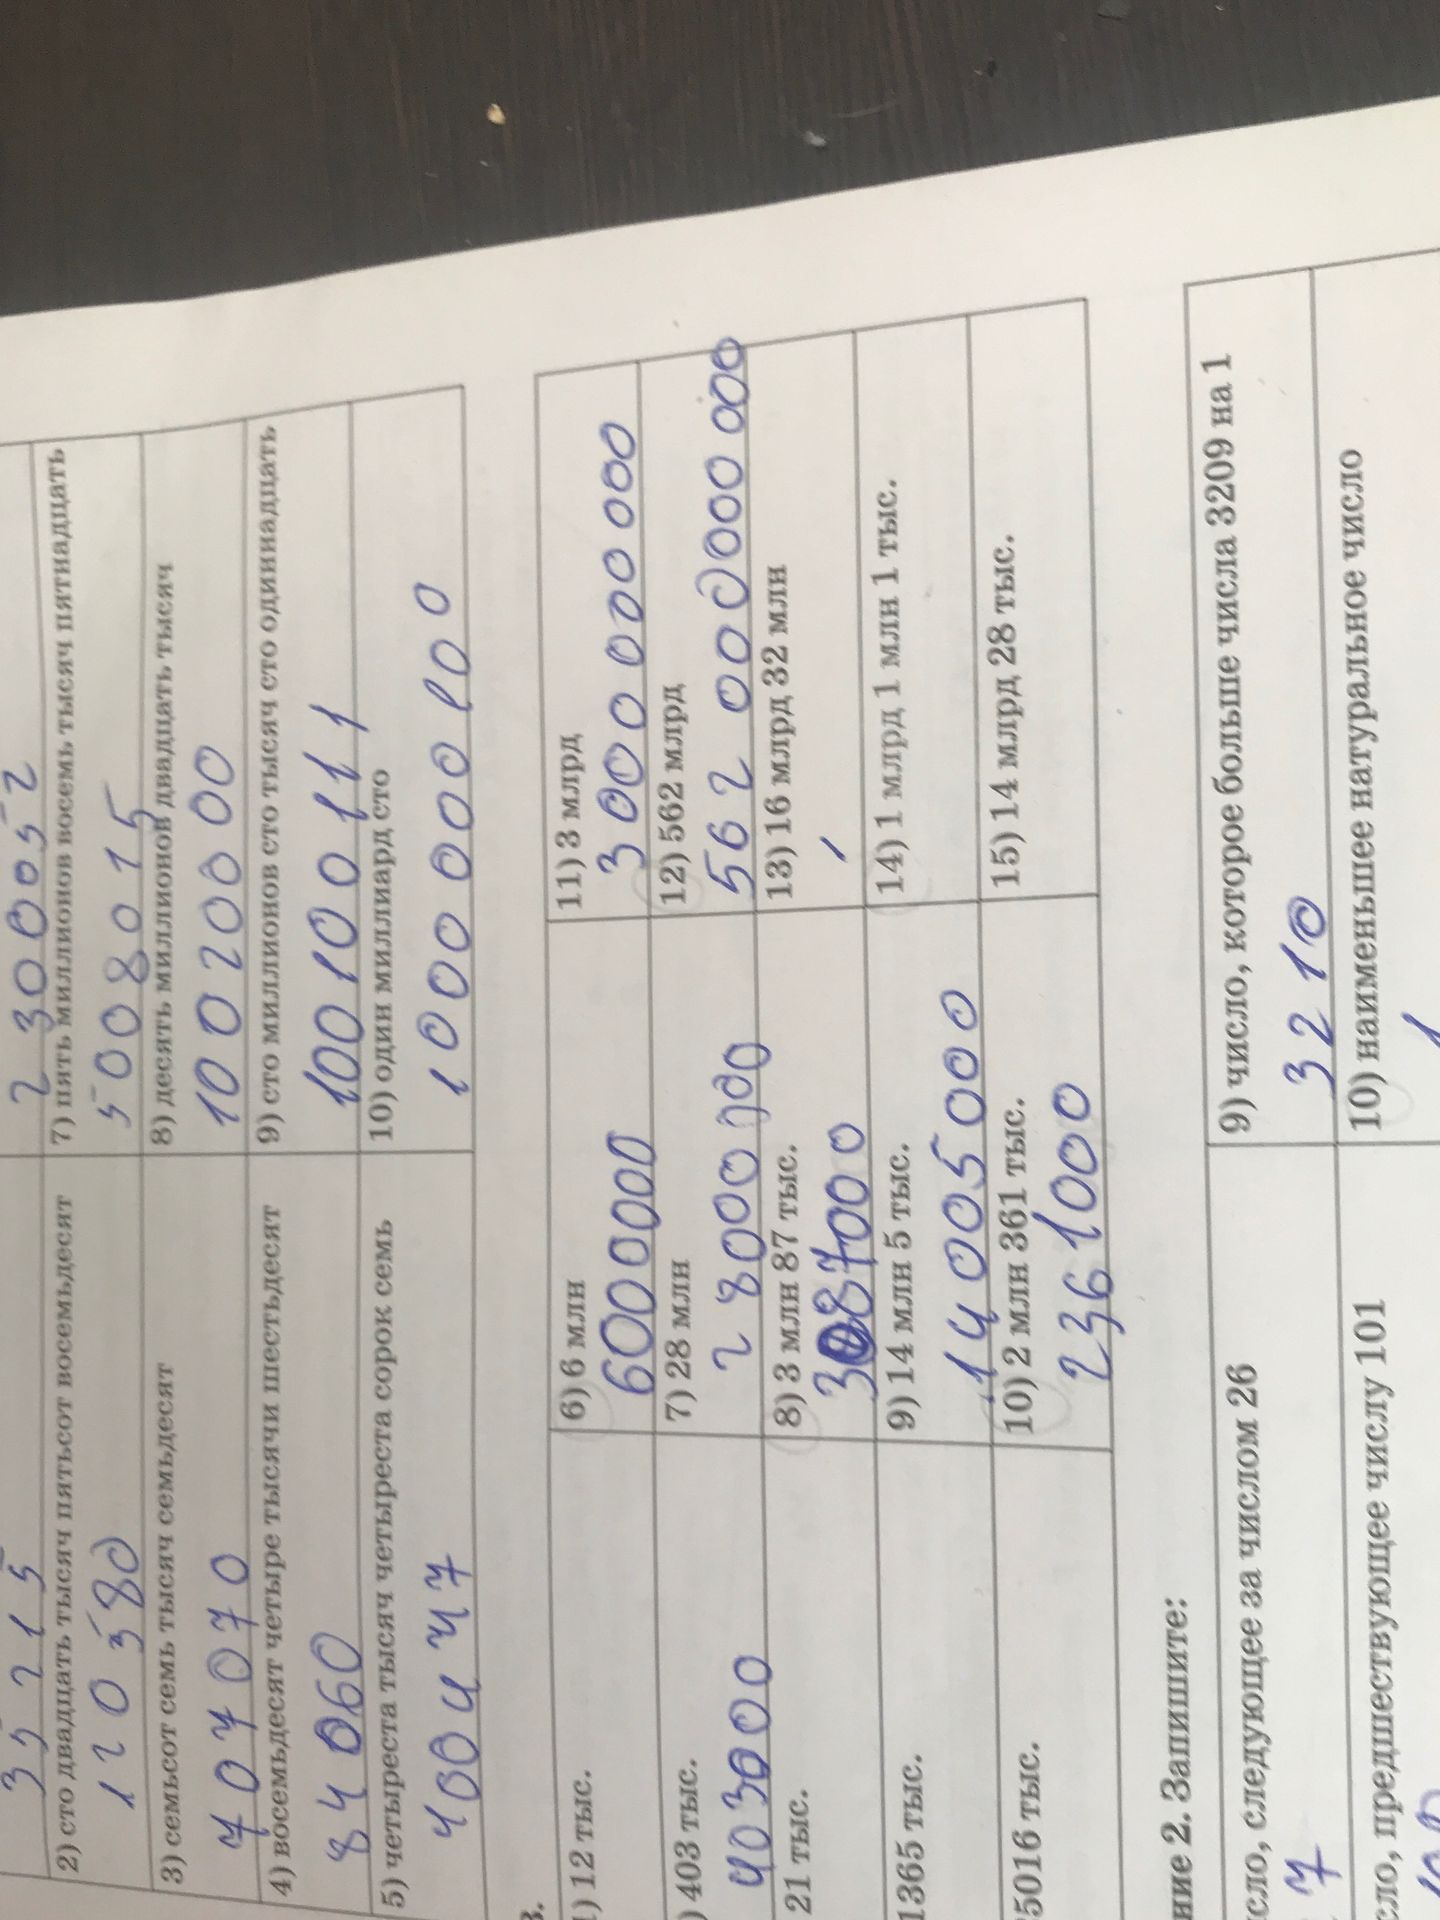 35 215
2 300052
2) сто двадцать тысяч пятьсот восемьдесят
7) пять миллионов восемь тысяч пятнадцать
120 580
5008015
3) семьсот семь тысяч семьдесят
8) десять миллионов двадцать тысяч
707070
10020000
4) восемьдесят четыре тысячи шестьдесят
9) сто миллионов сто тысяч сто одиннадцать
84060
100100111
5) четыреста тысяч четыреста сорок семь
10) один миллиард сто
400447
1000000100
в.
1) 12 тыс.
6) 6 млн
11) 3 млрд
6000000
3000000000
) 403 тыс.
7) 28 млн
12) 562 млрд
403000
28000000
562 000000000
21 тыс.
8) 3 млн 87 тыс.
13) 16 млрд 32 млн
3087000
1365 тыс.
9) 14 млн 5 тыс.
14) 1 млрд 1 млн 1 тыс.
14005000
5016 тыс.
10) 2 млн 361 тыс.
15) 14 млрд 28 тыс.
2361000
ние 2. Запишите:
сло, следующее за числом 26
9) число, которое больше числа 3209 на 1
7
3210
сло, предшествующее числу 101
10) наименьшее натуральное число
1